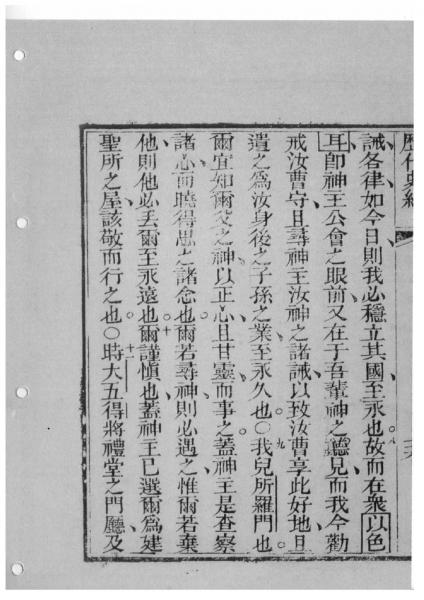 歷代史紀
誡各律如今日則我必穩立其國至永也故而在衆以色
耳卽神主公會之眼前又在于吾輩神之聽見而我今勸
戒汝曹守且尋神主汝神之諸誡以致汝曹享此好地且
遺之爲汝身後之子孫之業至永久也○我兒所羅門也
爾宜知爾父之神以正心且甘靈而事之蓋神主是查察
諸心而曉得思之諸念也爾若尋神則必遇之惟爾若棄
他則他必丟爾至永遠也爾謹愼也蓋神主已選爾爲建
聖所之屋該敬而行之也○時大五得將禮堂之門廳及
八
九
十
十一